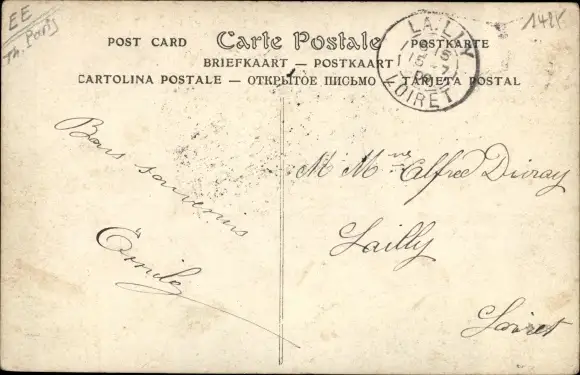 EE
Th. Paris
POST CARD Carte Postale POSTKARTE
BRIEFKAART — POSTKAART
CARTOLINA POSTALE — ОТКРЫТОЕ ПИСЬМО — TARJETA POSTAL
LAILLY
LOIRET
Bons souvenirs
M Mme Alfred
Lailly
Loiret